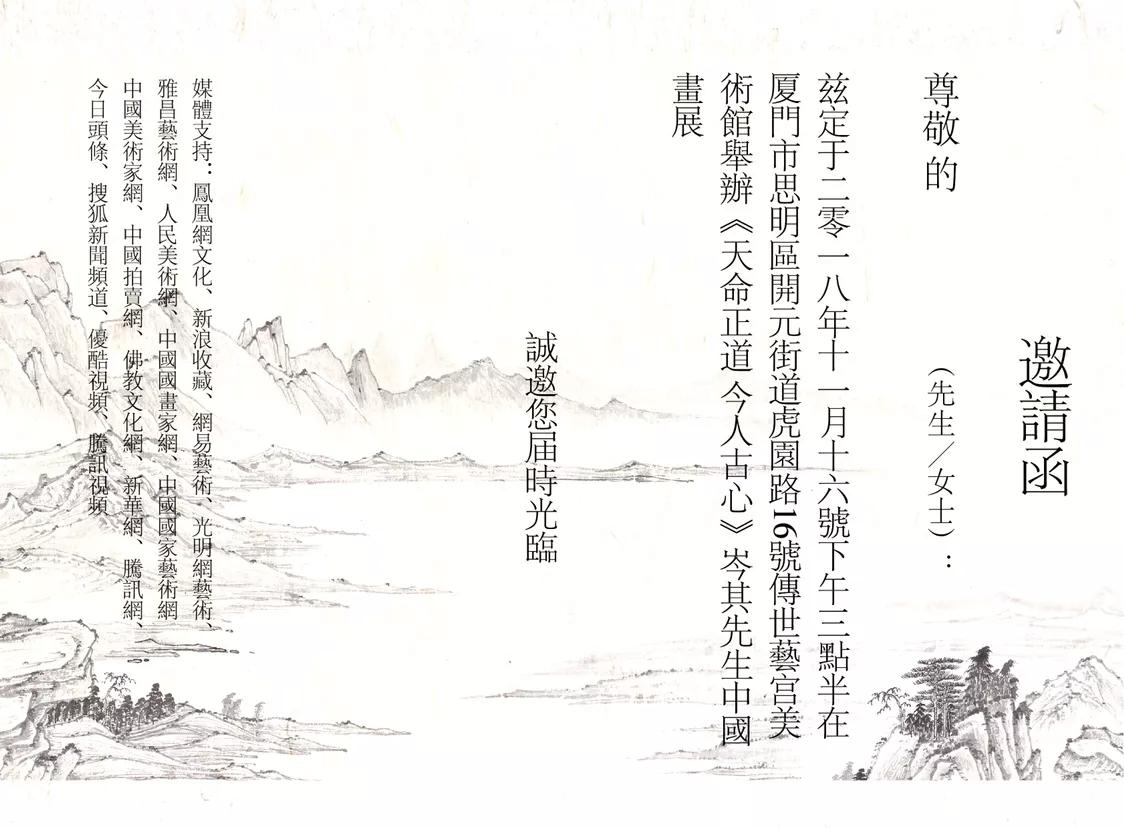 邀請函
尊敬的　　　　（先生／女士）：
兹定于二零一八年十一月十六號下午三點半在
厦門市思明區開元街道虎園路16號傳世藝宫美
術館舉辦《天命正道 今人古心》岑其先生中國
畫展
誠邀您届時光臨
媒體支持：鳳凰網文化、新浪收藏、網易藝術、光明網藝術、
雅昌藝術網、人民美術網、中國國畫家網、中國國家藝術網
中國美術家網、中國拍賣網、佛教文化網、新華網、騰訊網、
今日頭條、搜狐新聞頻道、優酷視頻、騰訊視頻